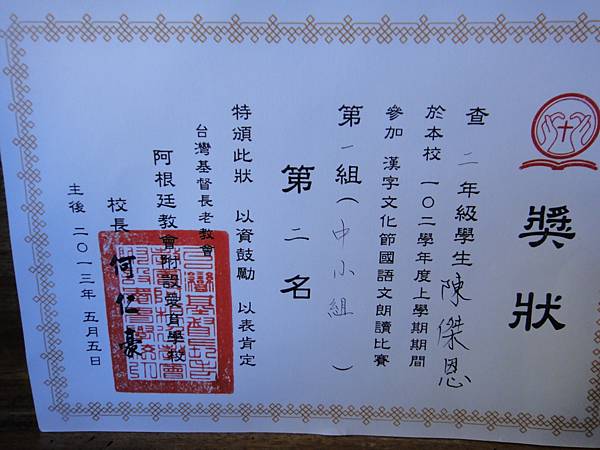 獎狀
查 二 年級學生 陳傑恩
於本校 一〇二學年度上學期期間
參加 漢字文化節國語文朗讀比賽
第 一 組 ( 中小組 )
第 二 名
特頒此狀 以資鼓勵 以表肯定
台灣基督長老教會
阿根廷教會附設愛育學校
校長 何仁豪
主後 二〇一三年 五月五日